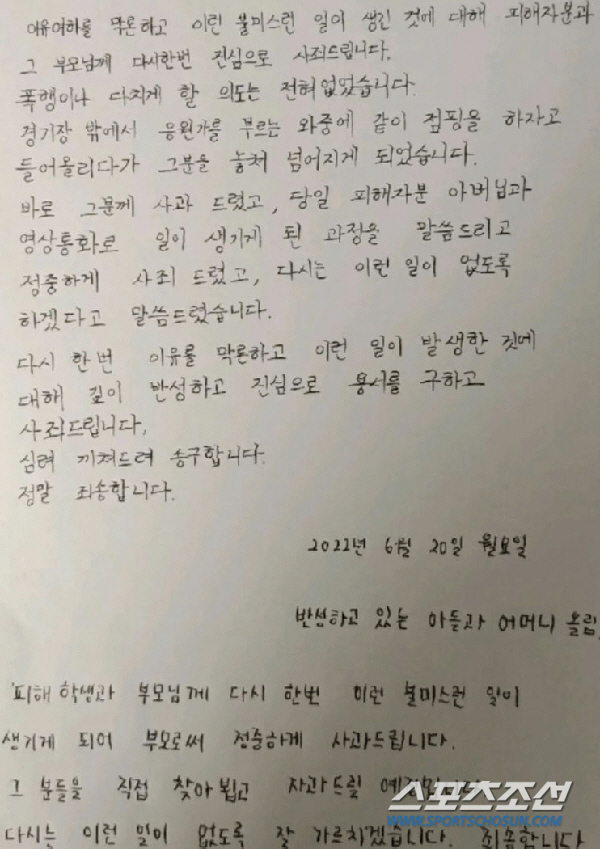 이유여하를 막론하고 이런 불미스런 일이 생긴 것에 대해 피해자분과
그 부모님께 다시한번 진심으로 사죄드립니다.
폭행이나 다치게 할 의도는 전혀없었습니다.
경기장 밖에서 응원가를 부르는 와중에 같이 점핑을 하자고
들어올리다가 그분을 놓쳐 넘어지게 되었습니다.
바로 그분께 사과 드렸고, 당일 피해자분 아버님과
영상통화로 일이 생기게 된 과정을 말씀드리고
정중하게 사죄 드렸고, 다시는 이런 일이 없도록
하겠다고 말씀드렸습니다.
다시 한번 이유를 막론하고 이런 일이 발생한 것에
대해 깊이 반성하고 진심으로 용서를 구하고
사죄드립니다.
심려 끼쳐드려 송구합니다.
정말 죄송합니다.
2022년 6월 20일 월요일
반성하고 있는 아들과 어머니 올림.
피해학생과 부모님께 다시 한번 이런 불미스런 일이
생기게 되어 부모로써 정중하게 사과드립니다.
그 분들을 직접 찾아뵙고 사과드릴 예정입니다.
다시는 이런 일이 없도록 잘 가르치겠습니다. 죄송합니다
스포츠조선
WWW.SPORTSCHOSUN.COM